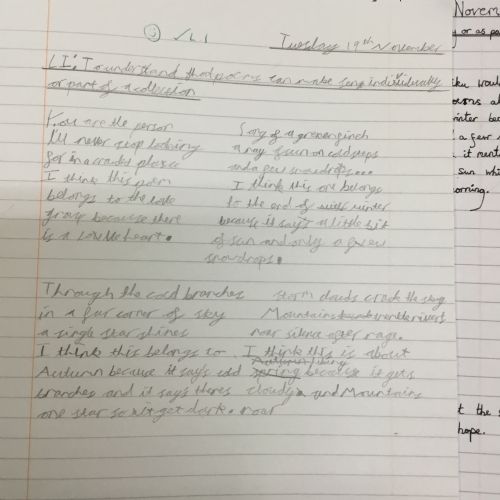 ✓ L I
Tuesday 19th November
L I: I understand that poems can make sense individually
or part of a collection
You are the person
I'll never stop looking
for in a crowded place
I think this poem
belongs to the love
group because there
is a love heart.
Song of a greenfinch
a ray of sun on cold steps
and a few snowdrops....
I think this one belongs
to the end of winter
because it says a little bit
of sun and only a few
snowdrops.
Through the cold branches
in a far corner of sky
a single star shines
I think this belongs to
Autumn because it says cold
branches and it says theres
one star so it get dark.
storm clouds crack the sky
Mountains rivers
roar silence after rage.
I think this is about
Autumn/
spring because it gets
cloudy and Mountains
roar
Novem
y or as pa
iku woul
oems a
inter bec
a few s
it ment
sun whi
orning.
t the s
hope.